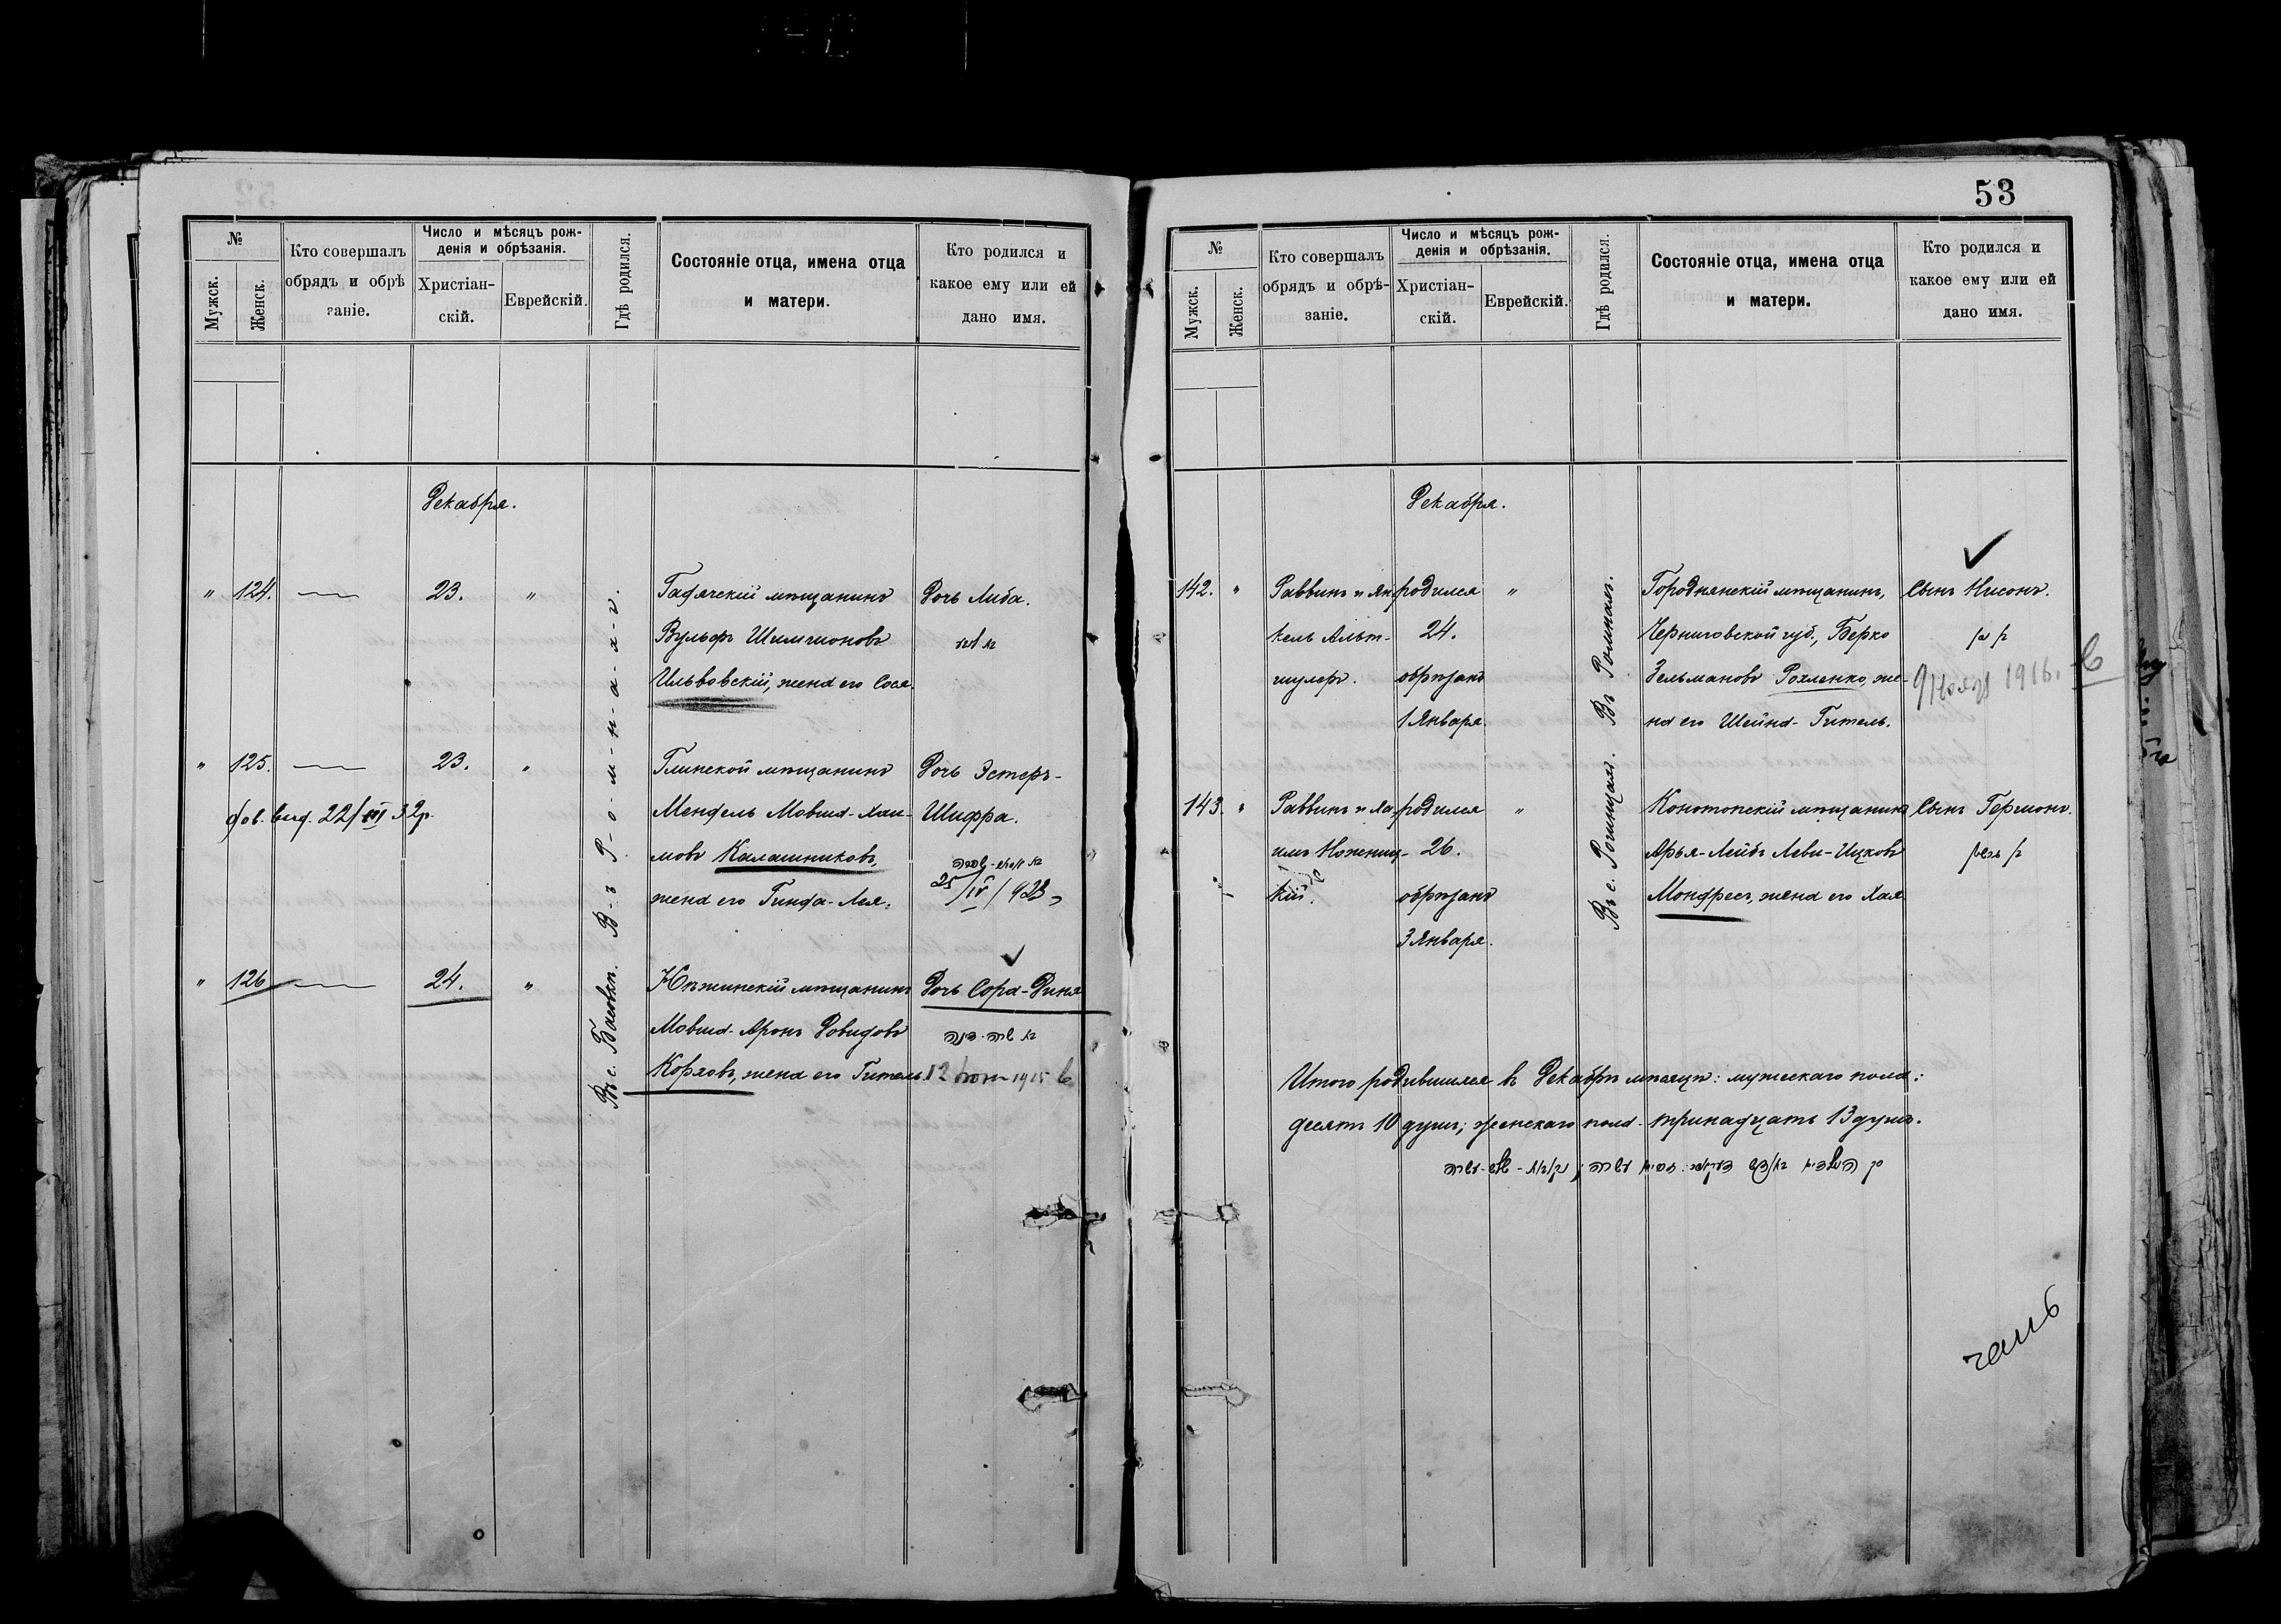 №
Мужск.
Женск.
Кто совершалъ
обрядъ и обрѣ
заніе.
Число и мѣсяцъ рож-
денія и обрѣзанія.
Христіан-
скій.
Еврейскій.
Гдѣ родился.
Состояніе отца, имена отца
и матери.
Кто родился и
какое ему или ей
дано имя.
Декабря.
" 124. — 23. "
Гадячскій мѣщанинъ
Вульфъ Шимшоновъ
Ильвовскій, жена его Сося.
Дочь Либа.
" 125. — 23. "
22/III 32 г.
Глинской мѣщанинъ
Мендель Мовша-Хаи-
мовъ Калашниковъ,
жена его Гинда-Лея.
Дочь Эстеръ-
Шифра.
25/IV/923
В-ъ Р-о-м-н-а-х-ъ.
" 126 — 24. "
Въ с. Басовкѣ.
Нѣжинскій мѣщанинъ
Мовша-Аронъ Довидовъ
Коряовъ, жена его Гитель
Дочь Сора-Диня
בת שרה-דינה
12 1915
53
№
Мужск.
Женск.
Кто совершалъ
обрядъ и обрѣ-
заніе.
Число и мѣсяцъ рож-
денія и обрѣзанія.
Христіан-
скій.
Еврейскій.
Гдѣ родился.
Состояніе отца, имена отца
и матери.
Кто родился и
какое ему или ей
дано имя.
Декабря.
142. "
Раввинъ и Ян-
кель Альт-
шулеръ.
родился
24.
обрѣзанъ
1 Января.
"
Въ Ромнахъ.
Городнянскій мѣщанинъ,
Черниговской губ., Берко
Зельмановъ Рохленко, же-
на его Шейна-Гитель.
Сынъ Нисонъ.
9 1916.
143. "
Раввинъ и Ха-
имъ Ножниц-
кій.
родился
26.
обрѣзанъ
3 Января.
"
Конотопскій мѣщанинъ
Арья-Лейбъ Леви-Ицковъ
Мондресъ, жена его Хая
Сынъ Гершонъ.
בן גרשון
Итого родившихся въ Декабрѣ мѣсяцѣ: мужескаго пола:
десять 10 душъ; женскаго пола - тринадцать 13 душъ.